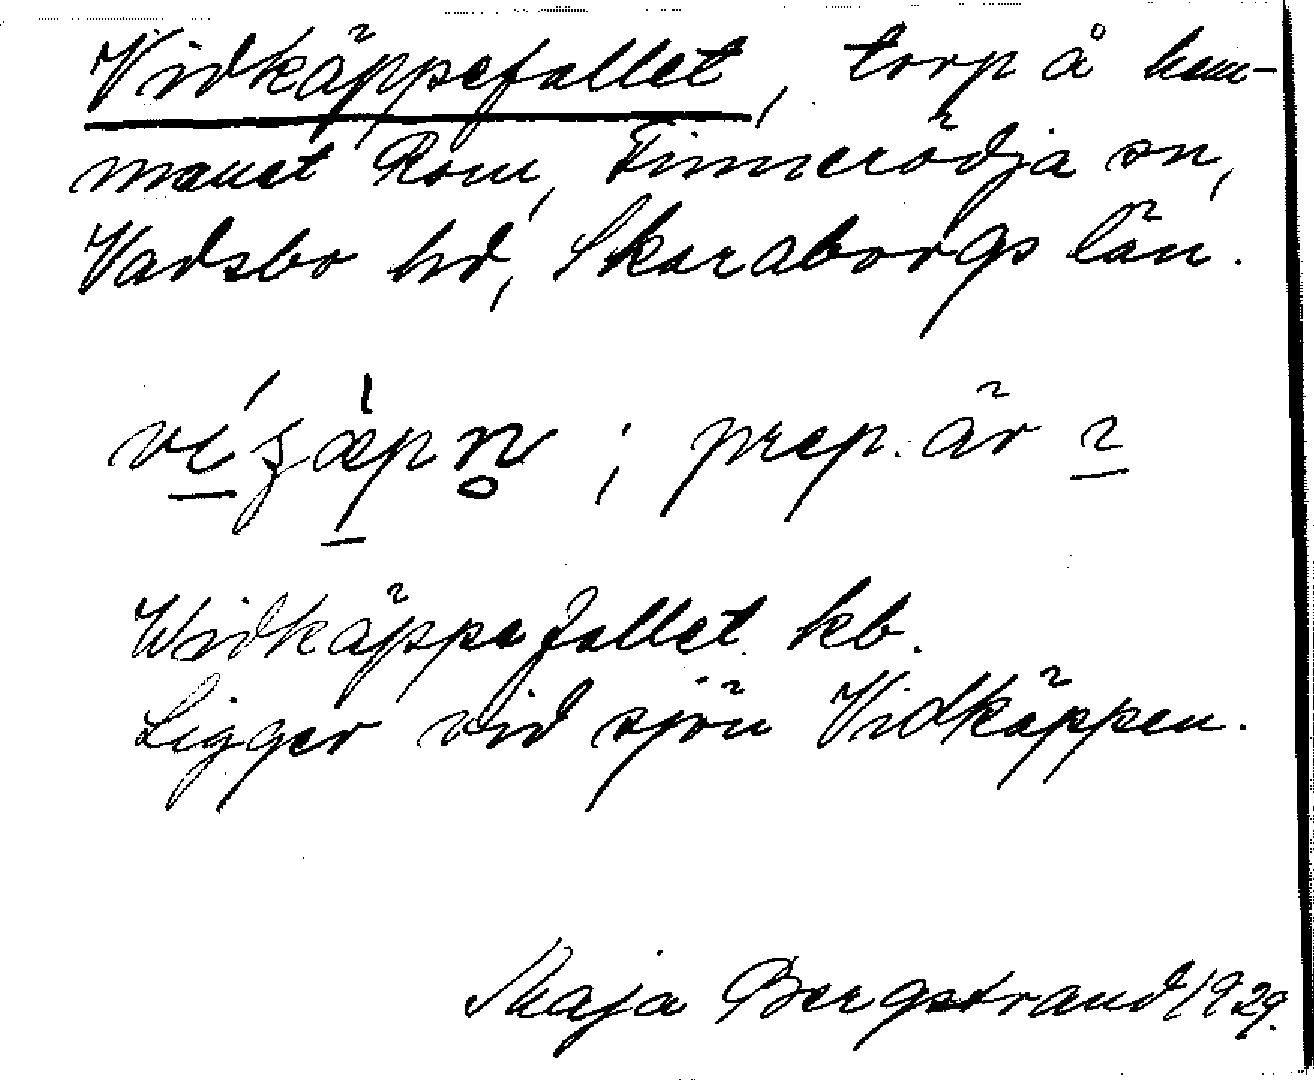 Vidkäppefallet, torp å hem-
manet Rom, Finnerödja sn,
Vadsbo hd, Skaraborgs län.
prep. är
Widkäppefallet kb.
Ligger vid sjön Vidkäppen.
Maja Bergstrand 1929.